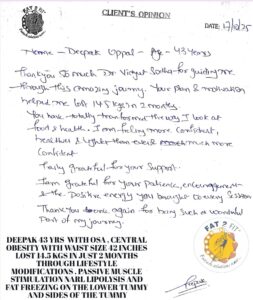 FAT 2 FIT
CLIENT'S OPINION
DATE: 17/10/25
Name - Deepak Uppal - Age - 43 Years
Thank you so much Dr for guiding me
through this amazing journey. Your plan & motivation
helped me lost 14.5 kgs in 2 months.
You have totally transformed the way I look at
food & health. I am feeling more confident,
healthier & lighter than ever much more
confident
Truly grateful for your support.
I am grateful for your patience, encouragement
& the positive energy you brought to every session
Thank you once again for being such a wonderful
part of my journey.
DEEPAK 43 YRS WITH OSA , CENTRAL
OBESITY WITH WAIST SIZE 42 INCHES
LOST 14.5 KGS IN JUST 2 MONTHS
THROUGH LIFESTYLE
MODIFICATIONS . PASSIVE MUSCLE
STIMULATION NARL LIPOLYSIS AND
FAT FREEZING ON THE LOWER TUMMY
AND SIDES OF THE TUMMY
FAT 2 FIT